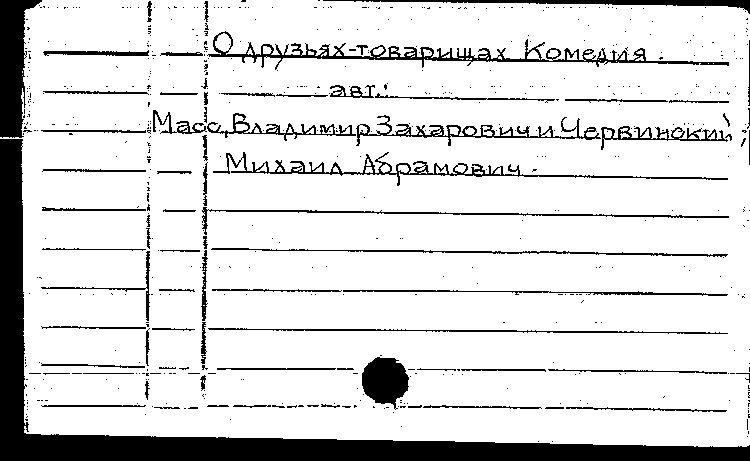 О друзьях-товарищах Комедия.
авт.:
Масс, Владимир Захарович и Червинский,
Михаил Абрамович.